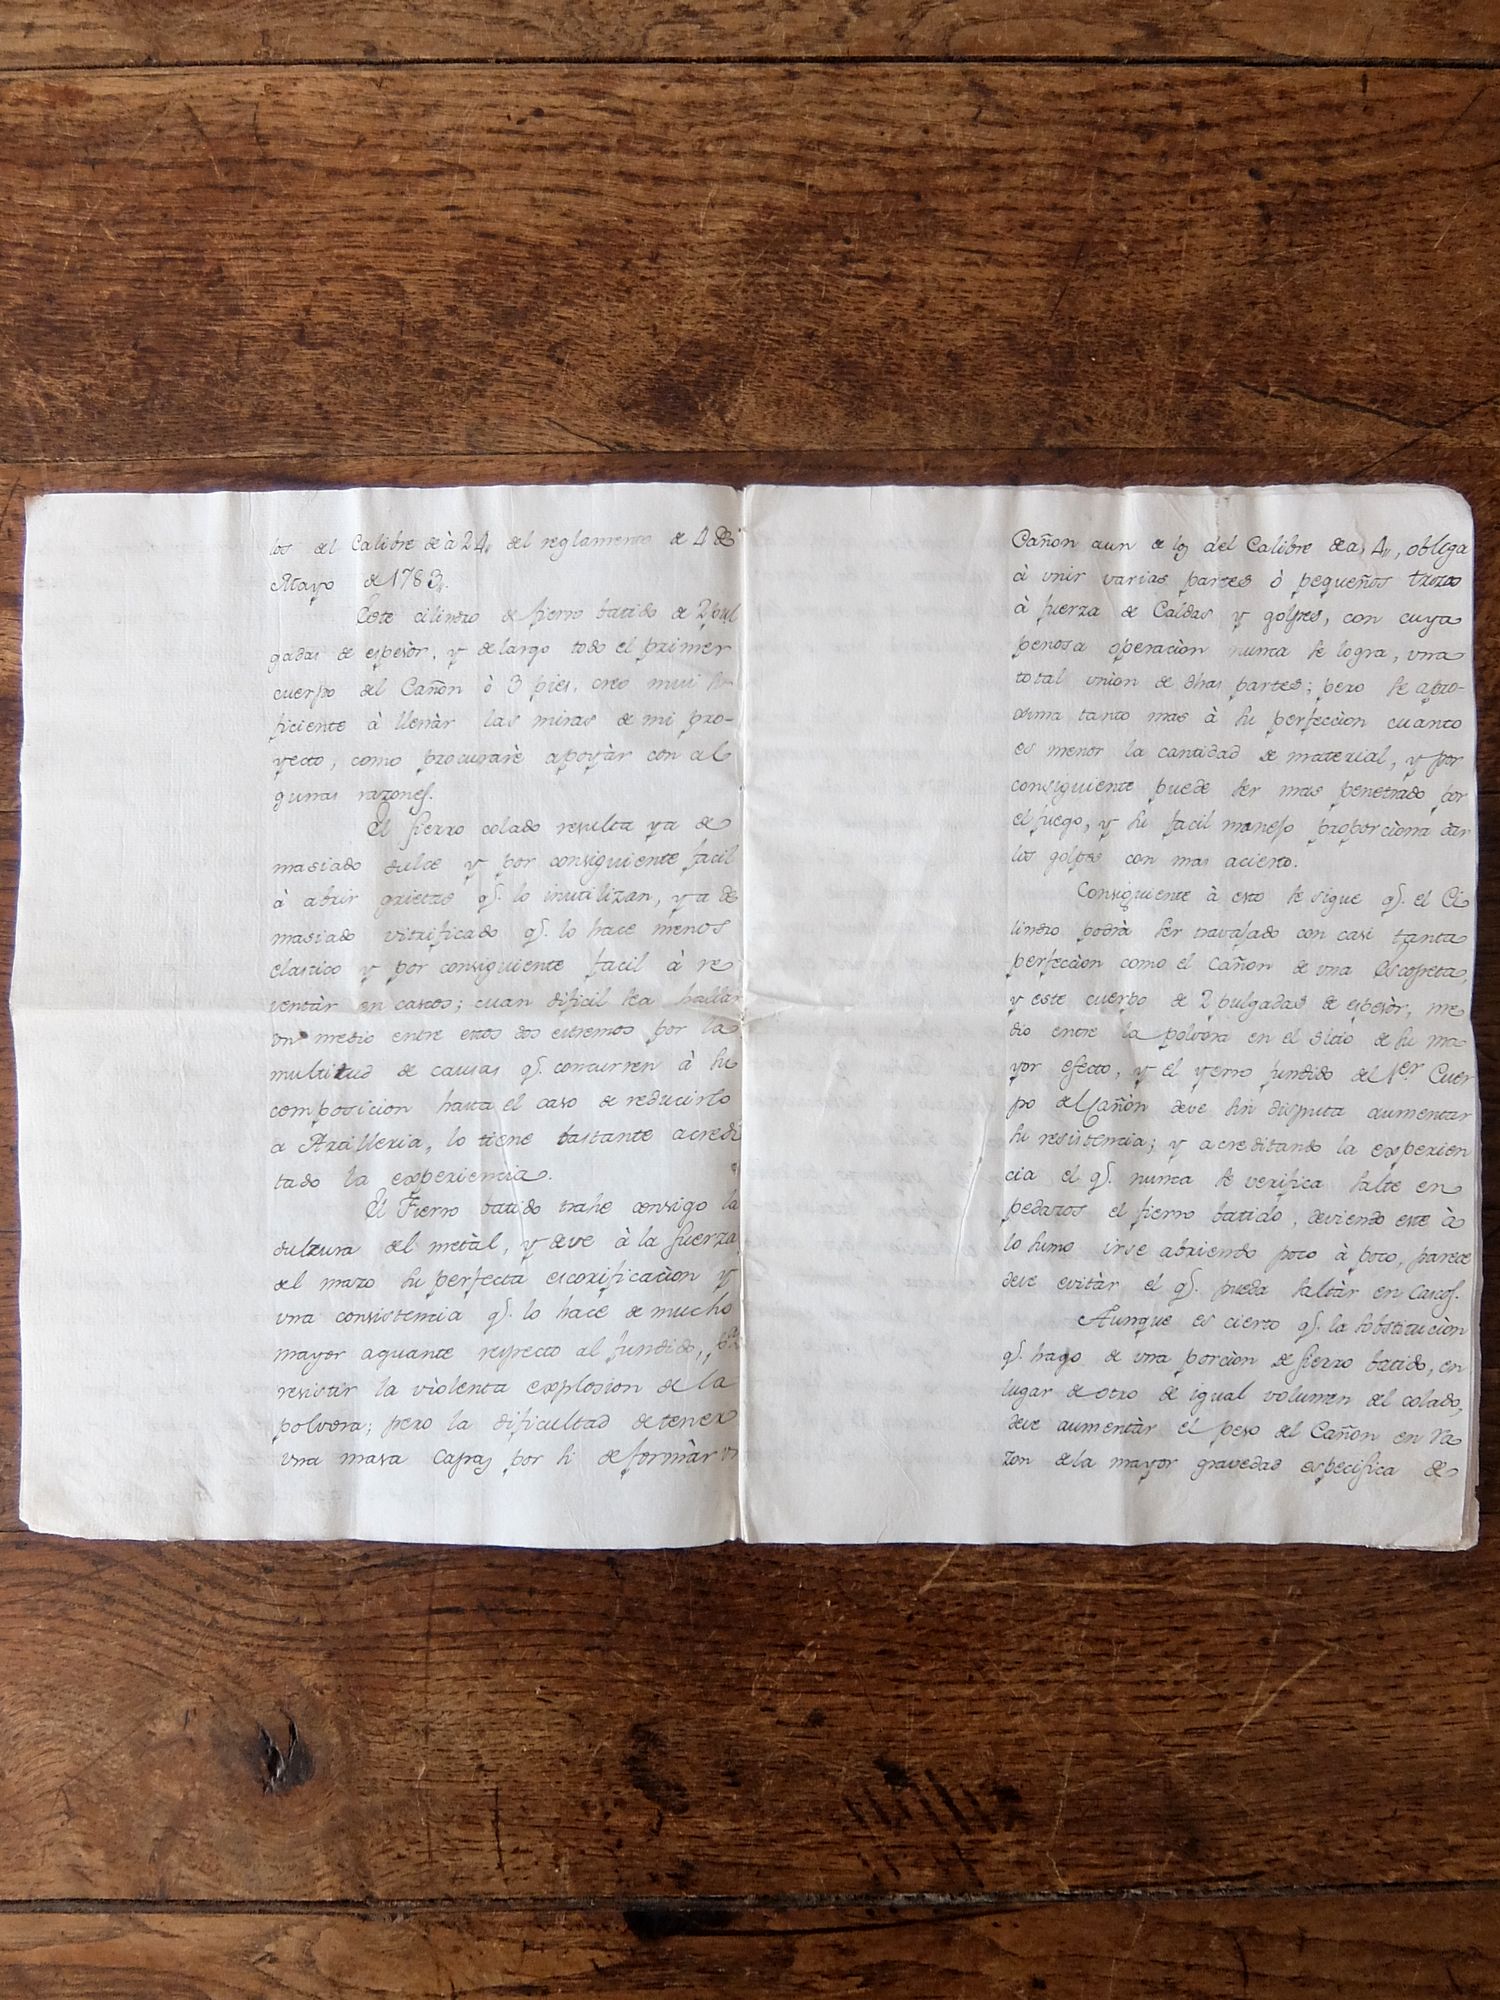 los del Calibre de à 24,, del reglamento de 4 de
Mayo de 1783,,.
Este cilindro de fierro batido de 2 pul
gadas de espesòr, y de largo todo el primer
cuerpo del Cañon ò 3 pies, creo mui su-
ficiente à llenàr las miras de mi pro-
yecto, como procurarè apoyàr con al
gunas razones.
El fierro colado resulta ya de
masiado dulce y por consiguiente facil
à abrir grietas q.e lo inutilizan, ya de
masiado vitrificado q.e lo hace menos
elastico y por consiguiente facil à re
ventàr en cascos; cuan dificil sea hallar
un medio entre estos dos estremos por la
multitud de causas q.e concurren à su
composicion hasta el caso de reducirlo
a Artilleria, lo tiene bastante acredi
tado la experiencia.
El Fierro batido trahe consigo la
dulzura del metàl, y deve à la fuerza
del mazo su perfecta escorificaciòn y
una consistencia q.e lo hace de mucho
mayor aguante respecto al fundido, p.a
resistir la violenta explosion de la
polvora; pero la dificultad de tener
una masa capaz por si de formàr un
Cañon aun de los del Calibre de a, 4,,, obliga
à unir varias partes ò pequeños trozos
à fuerza de Caldas y golpes, con cuya
penosa operaciòn nunca se logra, una
total uniòn de dhas partes; pero se apro-
xima tanto mas à su perfecciòn cuanto
es menor la cantidad de material, y por
consiguiente puede ser mas penetrado por
el fuego, y su facil manejo proporciona dar
los golpes con mas acierto.
Consiguiente à esto se sigue q.e el Ci
lindro podrà ser travajado con casi tanta
perfecciòn como el Cañon de una Escopeta,
y este cuerpo de 2 pulgadas de espesòr, me
dio entre la polvora en el sitio de su ma
yor efecto, y el yerro fundido del 1.er Cuer
po del Cañòn deve sin disputa aumentar
su resistencia; y acreditando la experien
cia el q.e nunca se verifica salte en
pedazos el fierro batido, deviendo este à
lo sumo irse abriendo poco à poco, parece
deve evitàr el q.e pueda saltàr en Cascos.
Aunque es cierto q.e la sobstituciòn
q.e hago de una porciòn de fierro batido, en
lugar de otro de igual volumen del colado,
deve aumentàr el peso del Cañon en ra
zon de la mayor gravedad especifica de